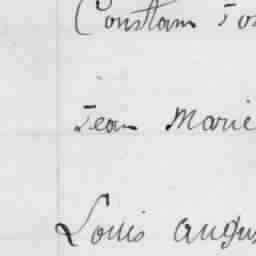 Constam Jos
Jean Marie
Louis Augus